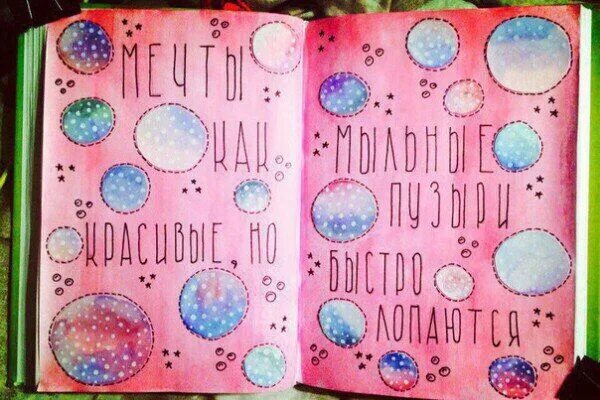 МЕЧТЫ
КАК
КРАСИВЫЕ, НО
МЫЛЬНЫЕ
ПУЗЫРИ
БЫСТРО
ЛОПАЮТСЯ